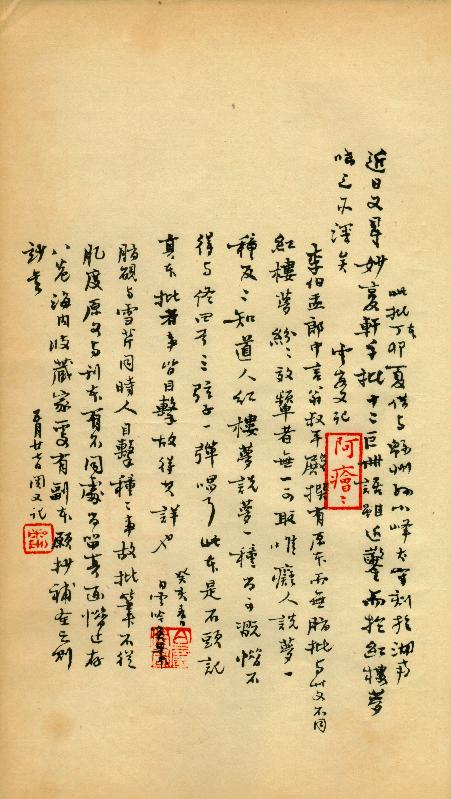 此批本丁卯夏借与綿州孫小峰太守刻於湖南
近日又得妙復軒手批十二巨冊語雖近鑿而於紅樓夢
味之亦深矣 雲客又記
阿癐〻
李伯孟郎中言翁叔平殿撰有原本而無脂批与此文不同
紅樓夢紛〻效顰者無一可取唯癡人說夢一
種及二知道人紅樓夢說夢一種尚可玩惜不
得与佟四哥三弦子一彈唱耳此本是石頭記
真本批者事皆目擊故得其詳也
癸亥春日白雲吟客筆
脂硯与雪芹同時人目擊種〻事故批筆不從
臆度原文与刊本有不同處尚留真面惜止存
八卷海內收藏家更有副本願抄補全之則
妙矣
五月廿七日閱又記